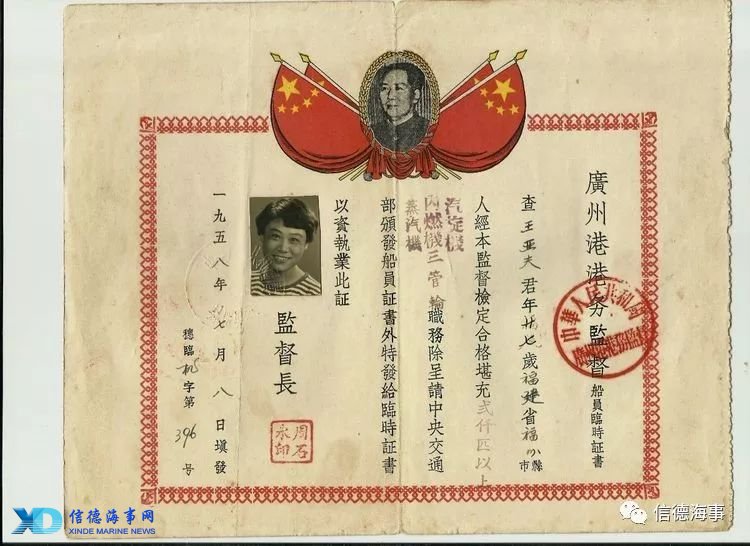 廣州港港务監督船員臨時証書
查王亚夫君年廿七歲福建省福州市縣
人經本監督檢定合格堪充弍仟匹以上
汽旋機
內燃機三管輪職務除呈請中央交通
蒸汽機
部頒發船員証書外特發給臨時証書
以資執業此証
監督長
周石
永印
一九五八年七月八日塡發
穗臨机字第396号
中華人民共和國
信德海事网
XINDE MARINE NEWS
信德海事